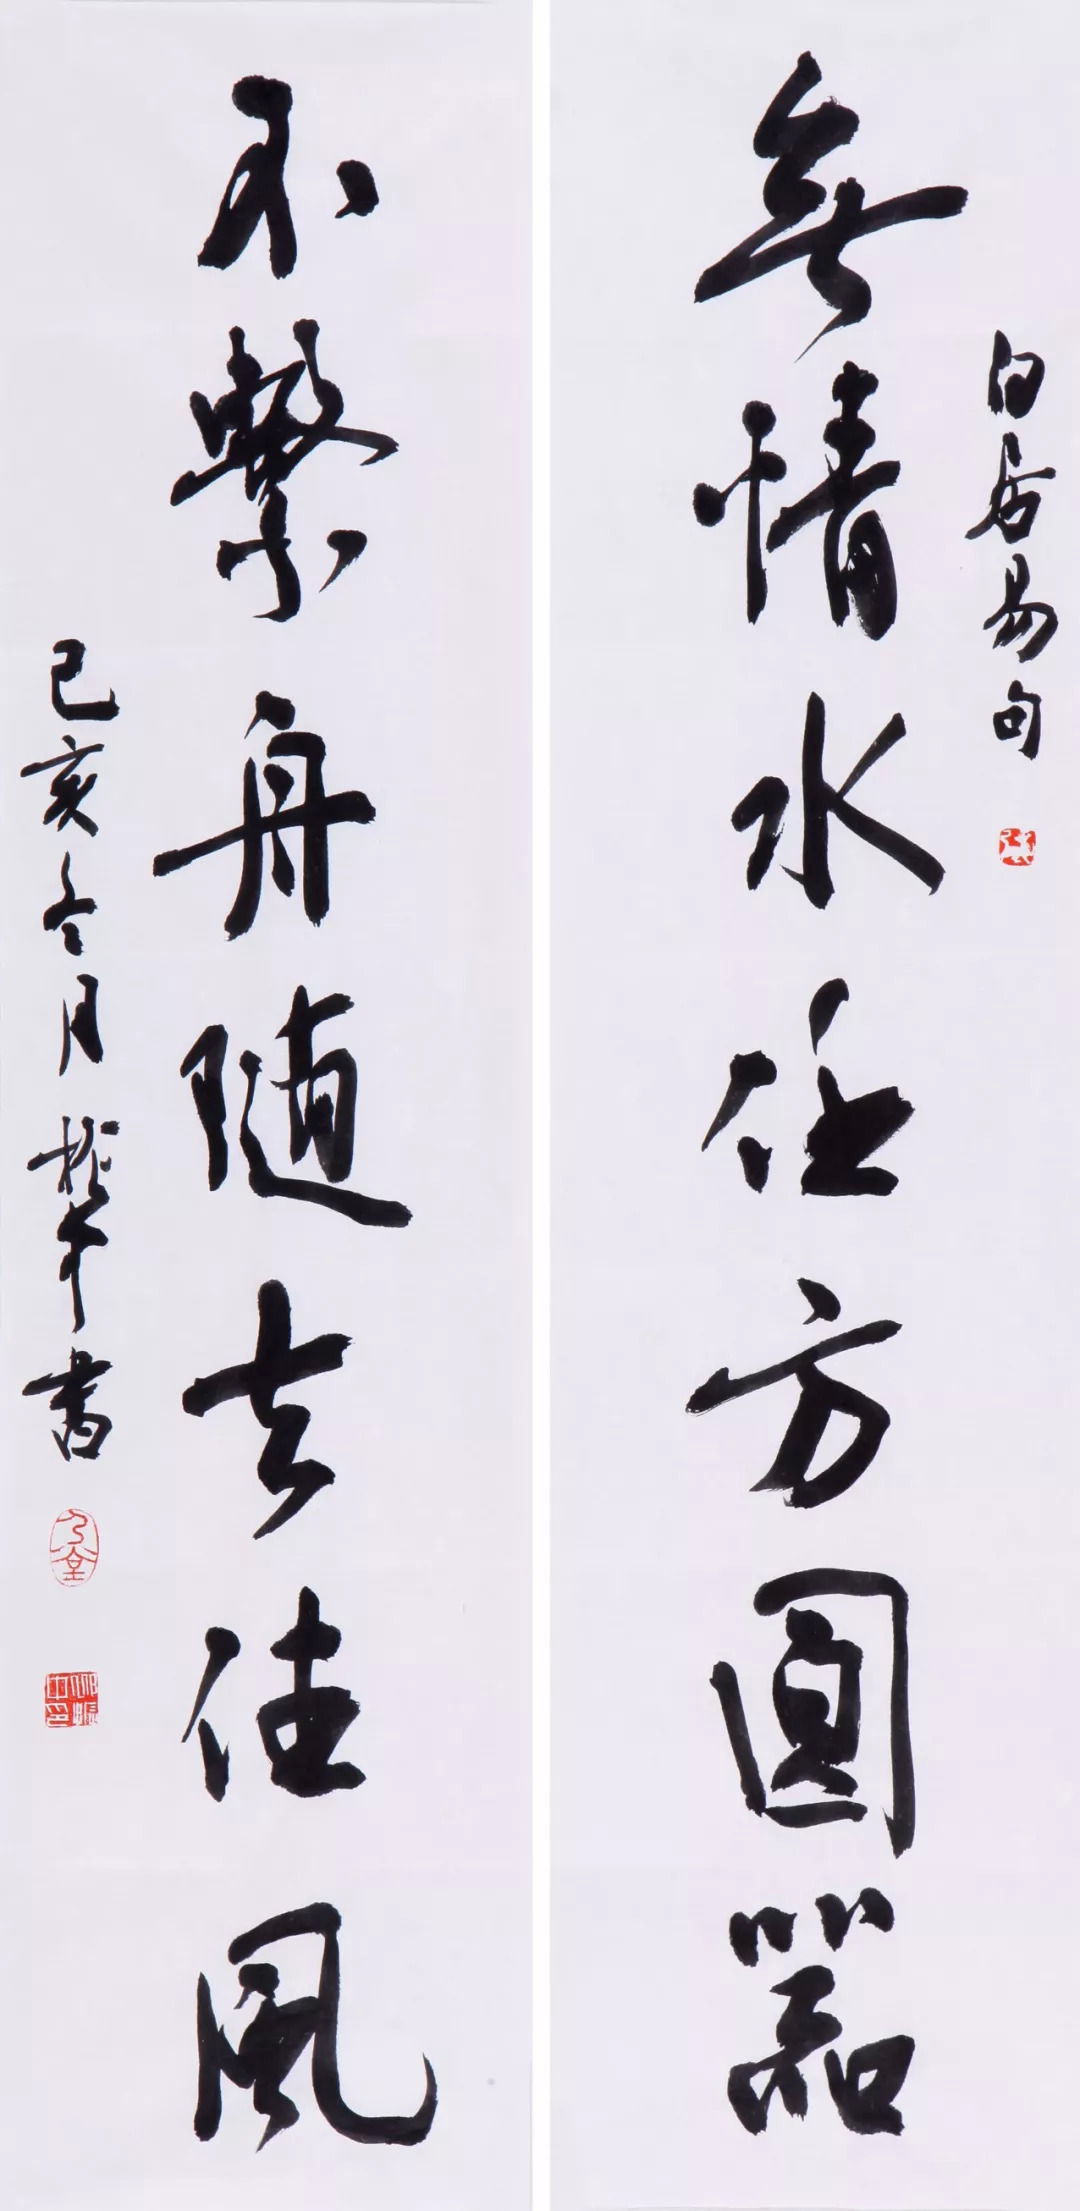 白居易句
無情水任方圓器
不繫舟隨去住風
己亥冬月書